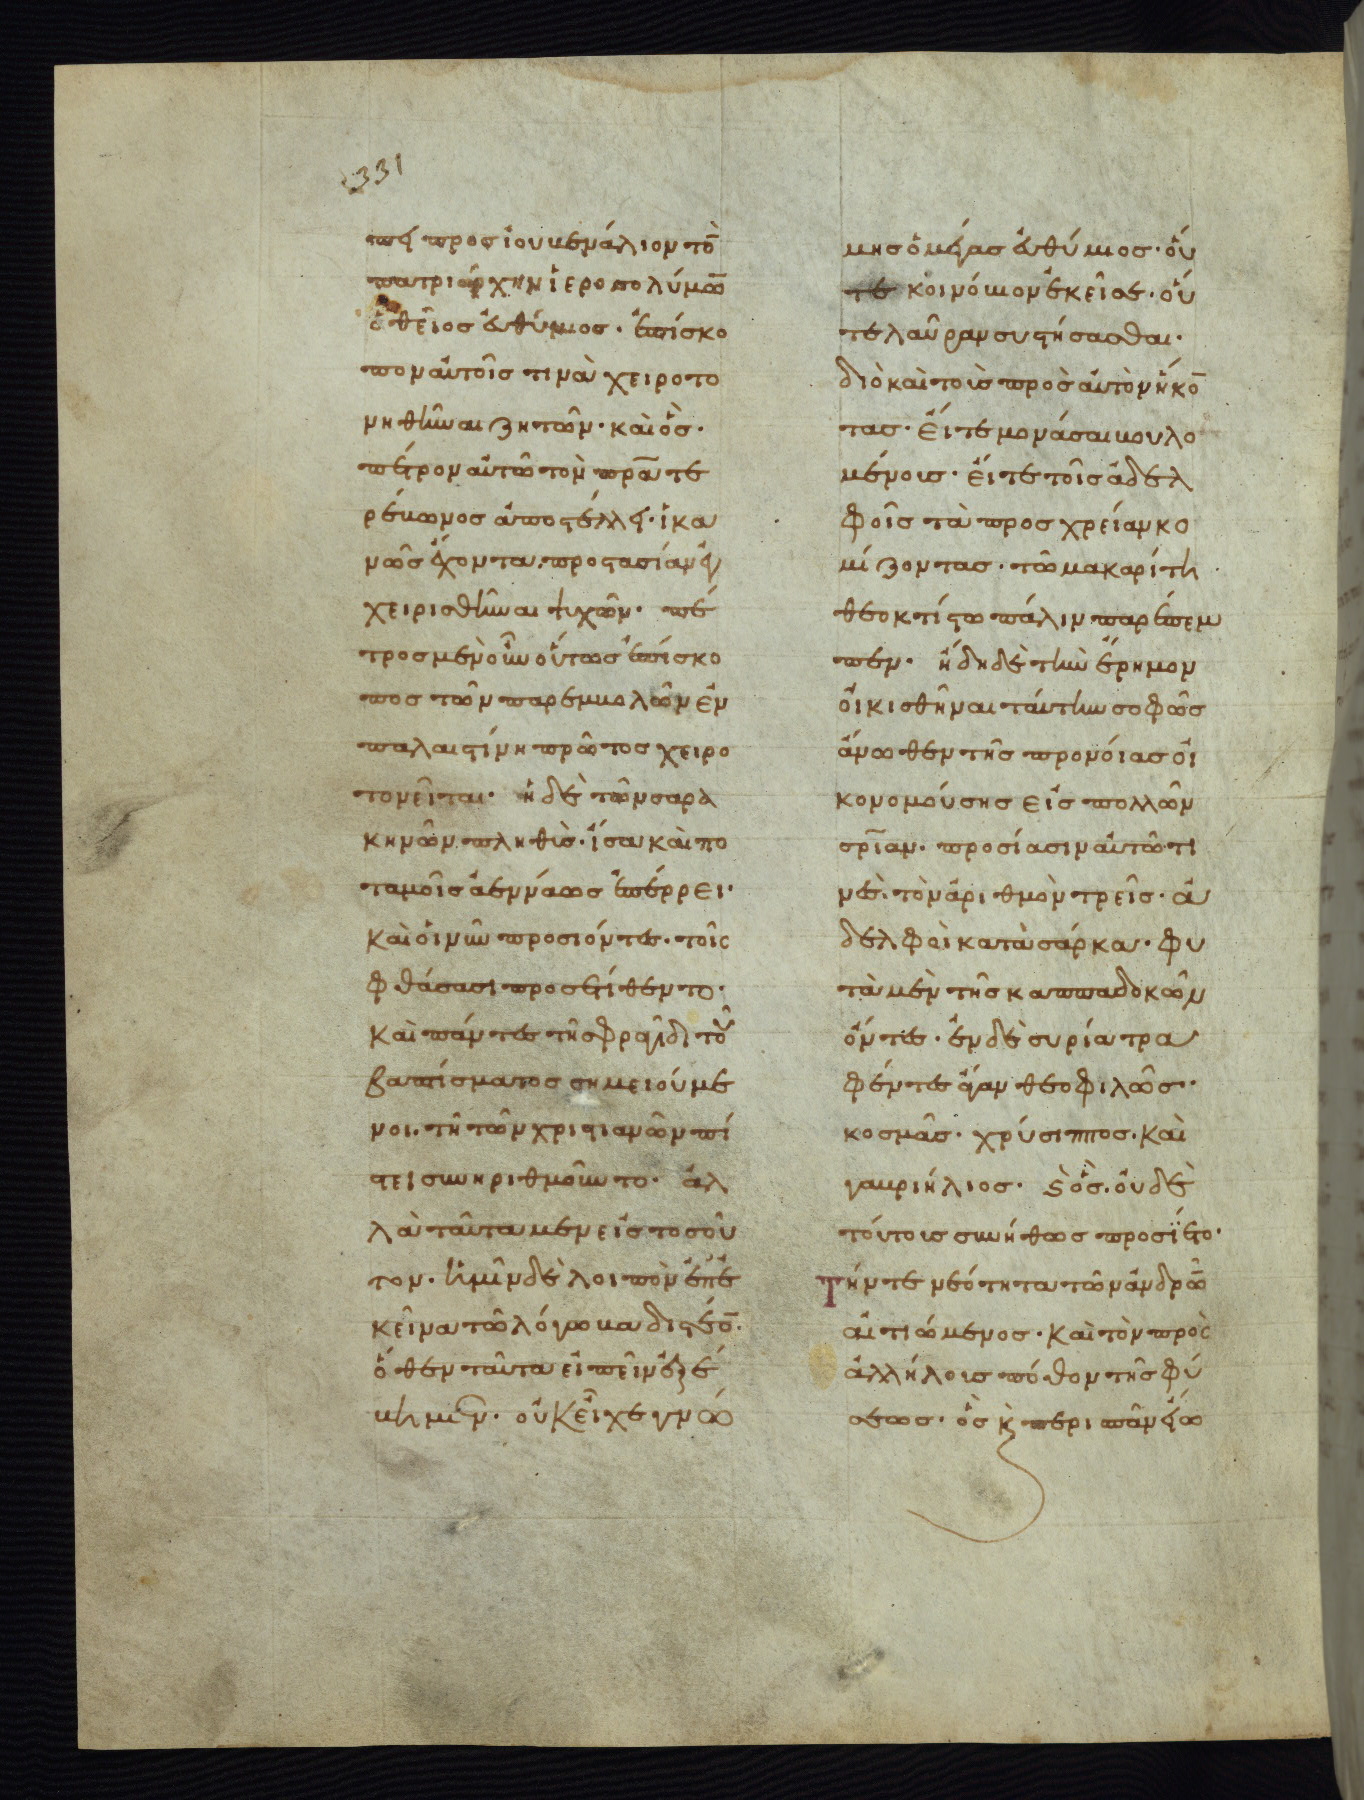 331
πει προς ἰουβενάλιον το̅
πατριάρχην ἱεροσολύμω̅
ὁ θεῖος εὐθύμιος· ἐπίσκο
πον αὐτοῖς τινὰ χειροτο
νηθῆναι ζητῶν· καὶ ὃς·
πέτρον αὐτῶ τὸν πρα̅ τε
ρέβωνος ἀποστέλλει· ἱκα
νῶς ἔχοντα προστασίαν ἐγ
χειρισθῆναι ψυχῶν· πέ
τρος μὲν οὖν οὕτως ἐπίσκο
πος τῶν παρεμβολῶν ἐν
παλαιστίνη πρῶτος χειρο
τονεῖται· ἡ δὲ τῶν σαρα
κηνῶν πληθὺς· ἴσα καὶ πο
ταμοῖς ἀεννάως ἐπέρρει·
καὶ οἱ νῦν προσιόντες· τοῖς
φθάσασι προσετίθεντο·
καὶ πάντες τῆ σφραγῖδι τοῦ
βαπτίσματος σημειούμε
νοι· τῆ τῶν χριστιανῶν πί
στει συνηριθμοῦντο· ἀλ
λὰ ταῦτα μὲν εἰς τοσοῦ
τον· ἡμῖν δὲ λοιπὸν ἐπ' ἐ
κεῖνα τῶ λόγω βαδιστέο̅·
ὅθεν ταῦτα εἰπεῖν ἐξέ
βημεν· οὐκ εἶχε γνώ
μης ὁ μέγας εὐθύμιος· οὔ
τε κοινόβιον ἐκεῖσε· οὔ
τε λαύραν συστήσασθαι·
διὸ καὶ τοὺς πρὸς αὐτὸν ἥκο̅
τας· εἴτε μονάσαι βουλο
μένοις· εἴτε τοῖς ἀδελ
φοῖς τὰ προς χρείαν κο
μίζοντας· τῶ μακαρίτη
θεοκτίστω πάλιν παρέπεμ
πεν· ἤδη δὲ τὴν ἔρημον
οἰκισθῆναι ταύτην σοφῶς
ἄνωθεν τῆς προνοίας οἰ
κονομούσης εἰς πολλῶν
σρι̅αν· προσίασιν αὐτῶ τι
νὲς· τὸν ἀριθμὸν τρεῖς· ἀ
δελφοὶ κατὰ σάρκα· φυ
τὰ μὲν τῆς καππαδοκῶν
ὄντες· ἐν δὲ συρία τρα
φέντες ἄγαν θεοφιλῶς·
κοσμᾶς· χρύσιππος· καὶ
γαβριήλιος· ὁ δὲ ὃς· οὐδὲ
τούτοις συνήθως προσίετο·
Τήν τε νεότητα τῶν ἀνδρω̅
αἰτιώμενος· καὶ τὸν πρὸς
ἀλλήλοις πόθον τῆς φύ
σεως· ὃς κ̀ περιπᾶν ἐξω